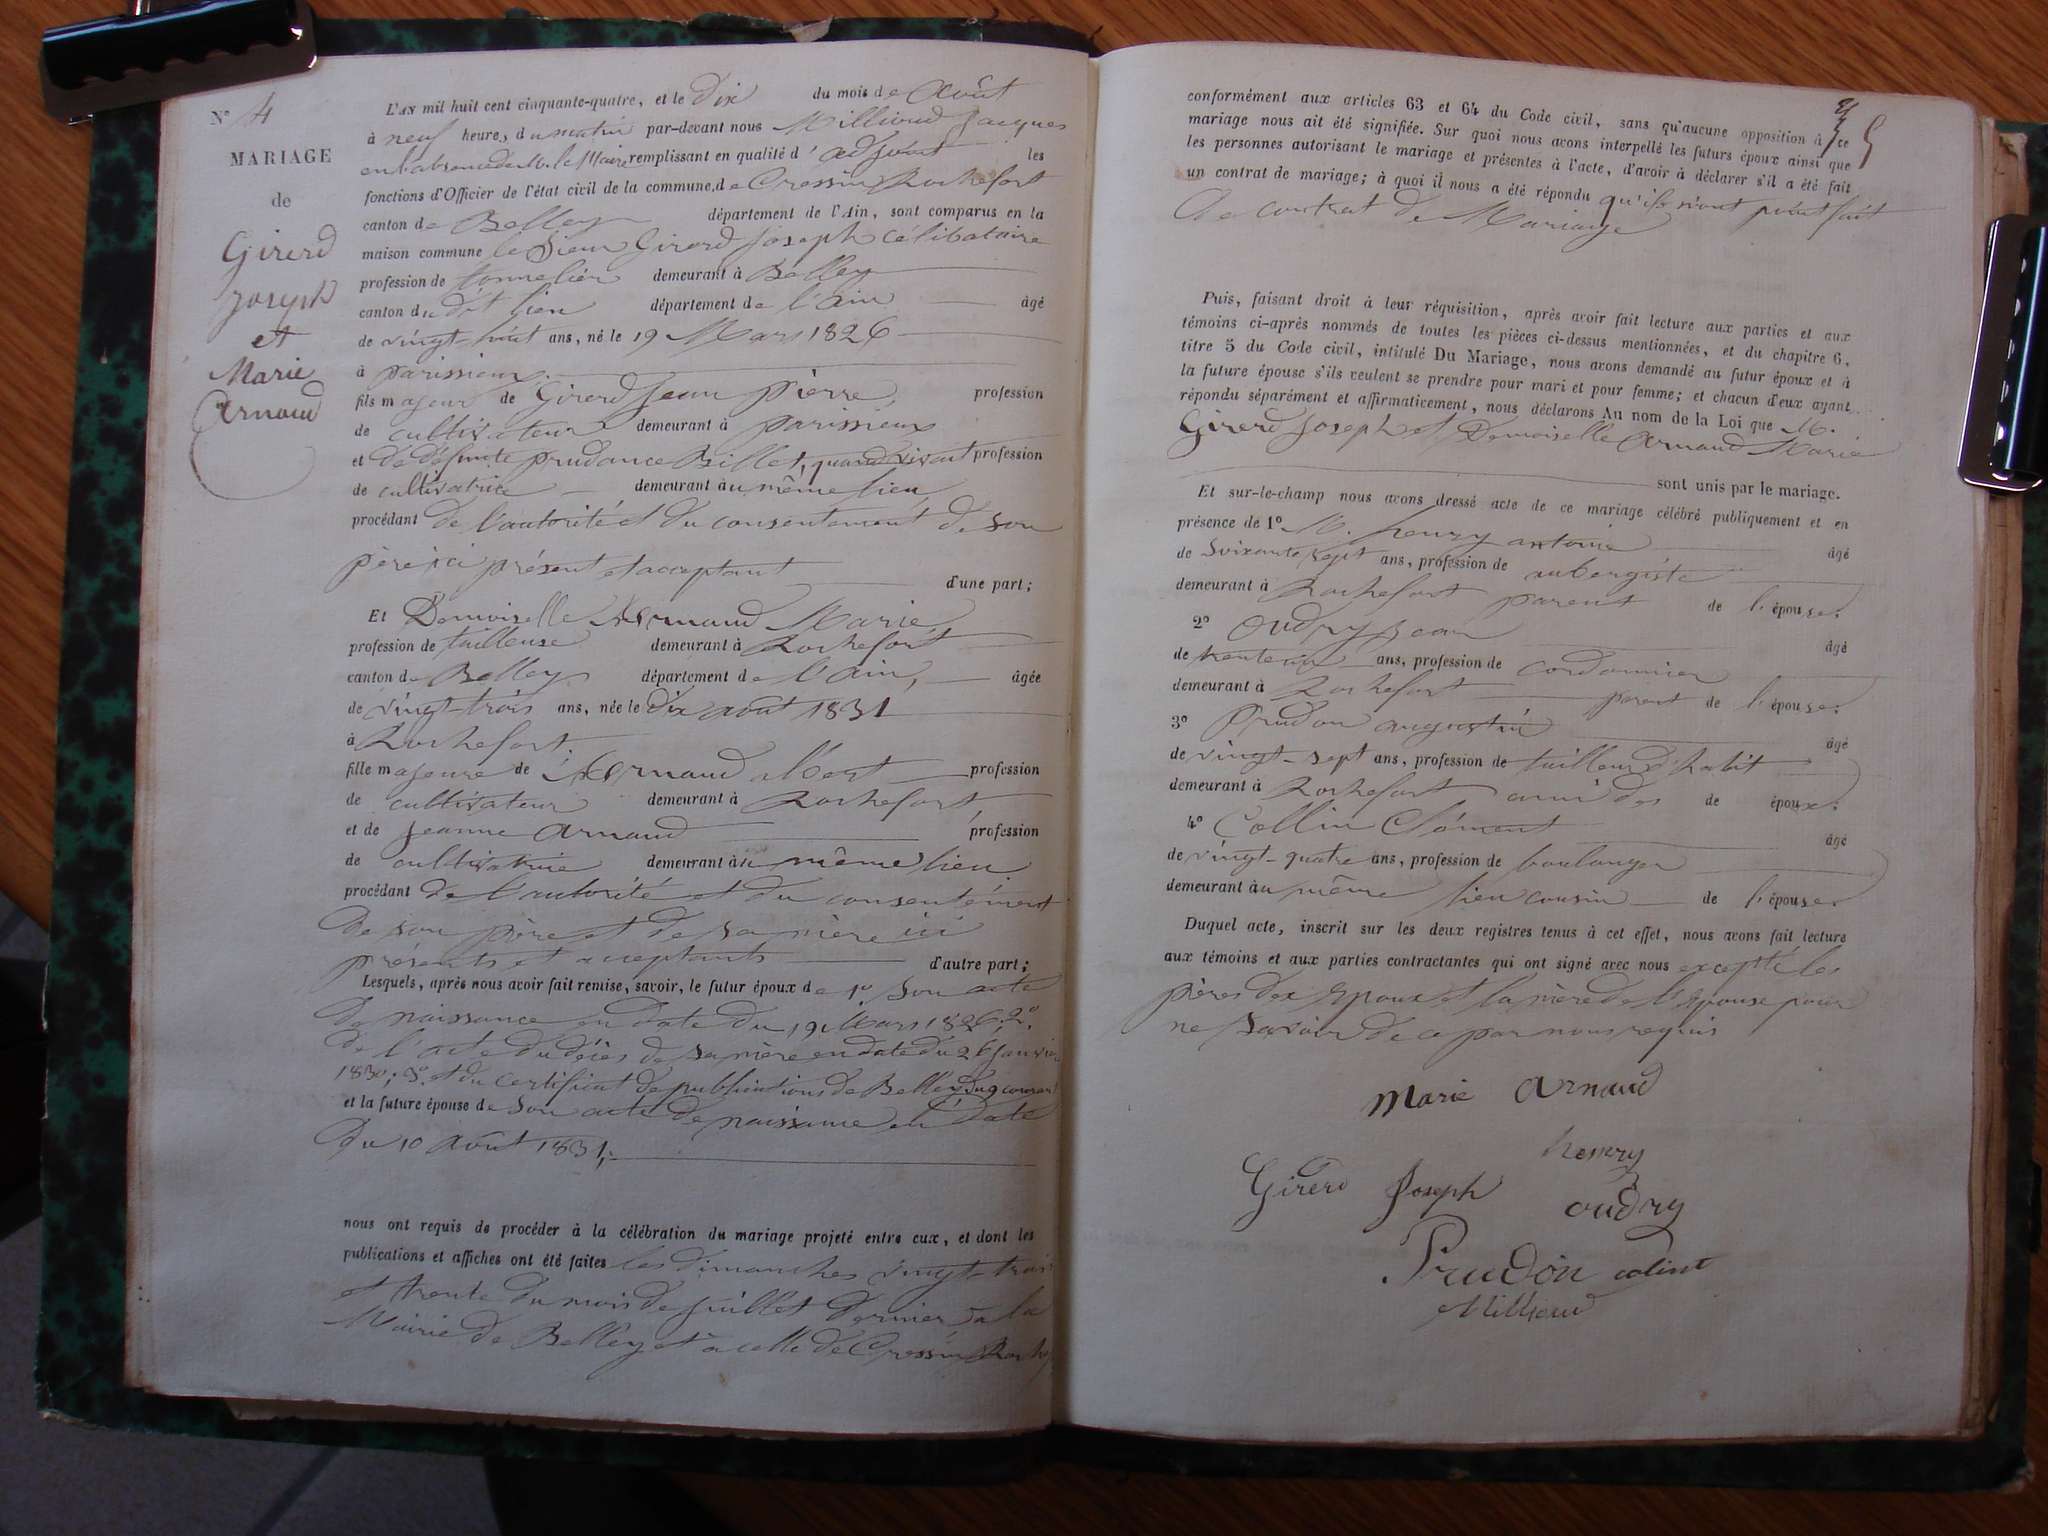 N° 4
MARIAGE
de
Girerd
Joseph
et
Marie
Arnaud
L'AN mil huit cent cinquante-quatre, et le dix du mois de Août
à neuf heure, du matin par-devant nous Millioud Jacques
en l'absence de M. le Maire remplissant en qualité d' adjoint les
fonctions d'Officier de l'état civil de la commune, de Cressin Rochefort
canton de Belley département de l'Ain, sont comparus en la
maison commune le Sieur Girerd Joseph célibataire
profession de tonnelier demeurant à Belley
canton du dit lieu département de l'Ain âgé
de vingt-huit ans, né le 19 Mars 1826
à parissieux
fils majeur de Girerd Jean Pierre, profession
de cultivateur demeurant à parissieux
et de défunte prudance Billet, quand vivant profession
de cultivatrice demeurant au même lieu
procédant de l'autorité et du consentement de son
père ici présent et acceptant d'une part;
Et Demoiselle Arnaud Marie,
profession de tailleuse demeurant à Rochefort
canton de Belley département de l'Ain, âgée
de vingt-trois ans, née le dix août 1831
à Rochefort
fille majeure de Arnaud albert profession
de cultivateur demeurant à Rochefort
et de Jeanne Arnaud profession
de cultivatrice demeurant au même lieu
procédant de l'autorité et du consentement
de son père et de sa mère ici
présents et acceptants d'autre part;
Lesquels, après nous avoir fait remise, savoir, le futur époux de 1° son acte
de naissance en date du 19 Mars 1826; 2°
de l'acte du décès de sa mère en date du 26 Janvier
1830; 3° et du certificat de publications de Belley du 9 courant
et la future épouse de son acte de naissance en date
du 10 Août 1831;
nous ont requis de procéder à la célébration du mariage projeté entre eux, et dont les
publications et affiches ont été faites les dimanches vingt-trois
et trente du mois de Juillet dernier à la
Mairie de Belley et à celle de Cressin Roche
conformément aux articles 63 et 64 du Code civil, sans qu'aucune opposition à ce
mariage nous ait été signifiée. Sur quoi nous avons interpellé les futurs époux ainsi que
les personnes autorisant le mariage et présentes à l'acte, d'avoir à déclarer s'il a été fait
un contrat de mariage; à quoi il nous a été répondu qu'ils n'ont point fait
de contrat de Mariage
Puis, faisant droit à leur réquisition, après avoir fait lecture aux parties et aux
témoins ci-après nommés de toutes les pièces ci-dessus mentionnées, et du chapitre 6,
titre 5 du Code civil, intitulé Du Mariage, nous avons demandé au futur époux et à
la future épouse s'ils veulent se prendre pour mari et pour femme; et chacun d'eux ayant
répondu séparément et affirmativement, nous déclarons Au nom de la Loi que M.
Girerd Joseph et Demoiselle Arnaud Marie
sont unis par le mariage.
Et sur-le-champ nous avons dressé acte de ce mariage célébré publiquement et en
présence de 1° M. henry antoine âgé
de soixante sept ans, profession de aubergiste
demeurant à Rochefort parent de l'épouse.
2° Oudry Jean âgé
de ans, profession de cordonnier
demeurant à Rochefort parent de l'épouse.
3° Prudon augustin âgé
de vingt-sept ans, profession de tailleur d'habit
demeurant à Rochefort ami des de époux.
4° Collin Clément âgé
de vingt-quatre ans, profession de boulanger
demeurant au même lieu cousin de l'épouse.
Duquel acte, inscrit sur les deux registres tenus à cet effet, nous avons fait lecture
aux témoins et aux parties contractantes qui ont signé avec nous excepté les
pères des époux et la mère de l'épouse pour
ne savoir de ce par nous requis
Marie Arnaud
henry
Girerd Joseph
oudry
Prudon colint
Millioud